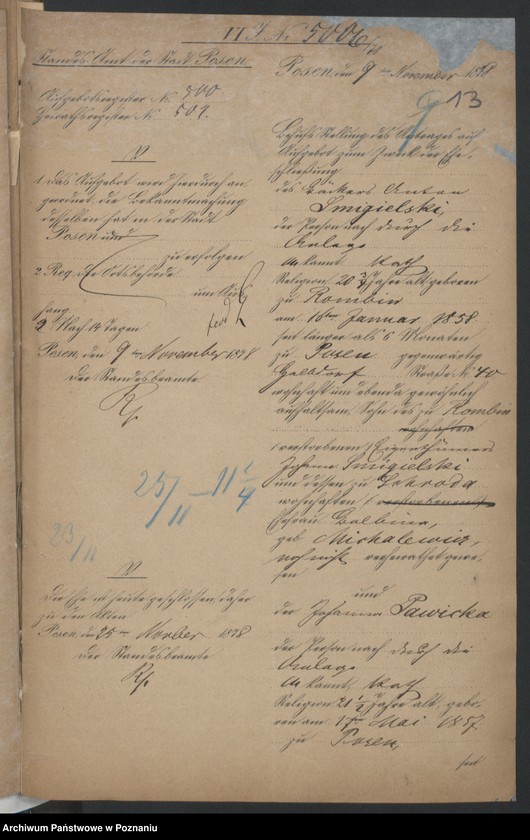 II J. No 5006/78
Standes-Amt der Stadt Posen
Aufgebotsregister No. 500
Heirathsregister No. 509.
V
1. Das Aufgebot wird hierdurch an-
geordnet, die Bekanntmachung
desselben hat in der Stadt
Posen und
zu erfolgen
2. Req. die Ortsbehörde
um Aus-
hang
3 Nach 14 Tagen
Posen, den 9ten November 1878
Der Standesbeamte
25/11 – 11 1/4
23/11
V
Die Ehe ist heute geschlossen, daher
zu den Akten
Posen, den 25ten Novber 1878
Der Standesbeamte
Posen, den 9ten November 1878
13
Behufs Stellung des Antrages auf
Aufgebot zum Zweck der Ehe-
schließung
des Bäckers Anton
Smigielski,
der Person nach durch die
Anlage
anerkannt, kath
Religion, 20 3/4 Jahre alt, geboren
zu Rombin
am 16ten Januar 1858
seit länger als 6 Monaten
zu Posen gegenwärtig
Straße No. 40
wohnhaft und ebenda gewöhnlich
aufhaltsam, Sohn des zu Rombin
wohnhaften
verstorbenen Eigenthümers
Johann Smigielski
und dessen zu Schroda
wohnhaften verstorbenen
Ehefrau Balbina,
geb. Michalewicz,
noch nicht verheirathet gewe-
sen
und
der Johanna Pawicka
der Person nach durch die
Anlage
anerkannt, kath
Religion 21 1/2 Jahre alt, gebo-
ren am 17ten Mai 1857
zu Posen,
seit
Archiwum Państwowe w Poznaniu